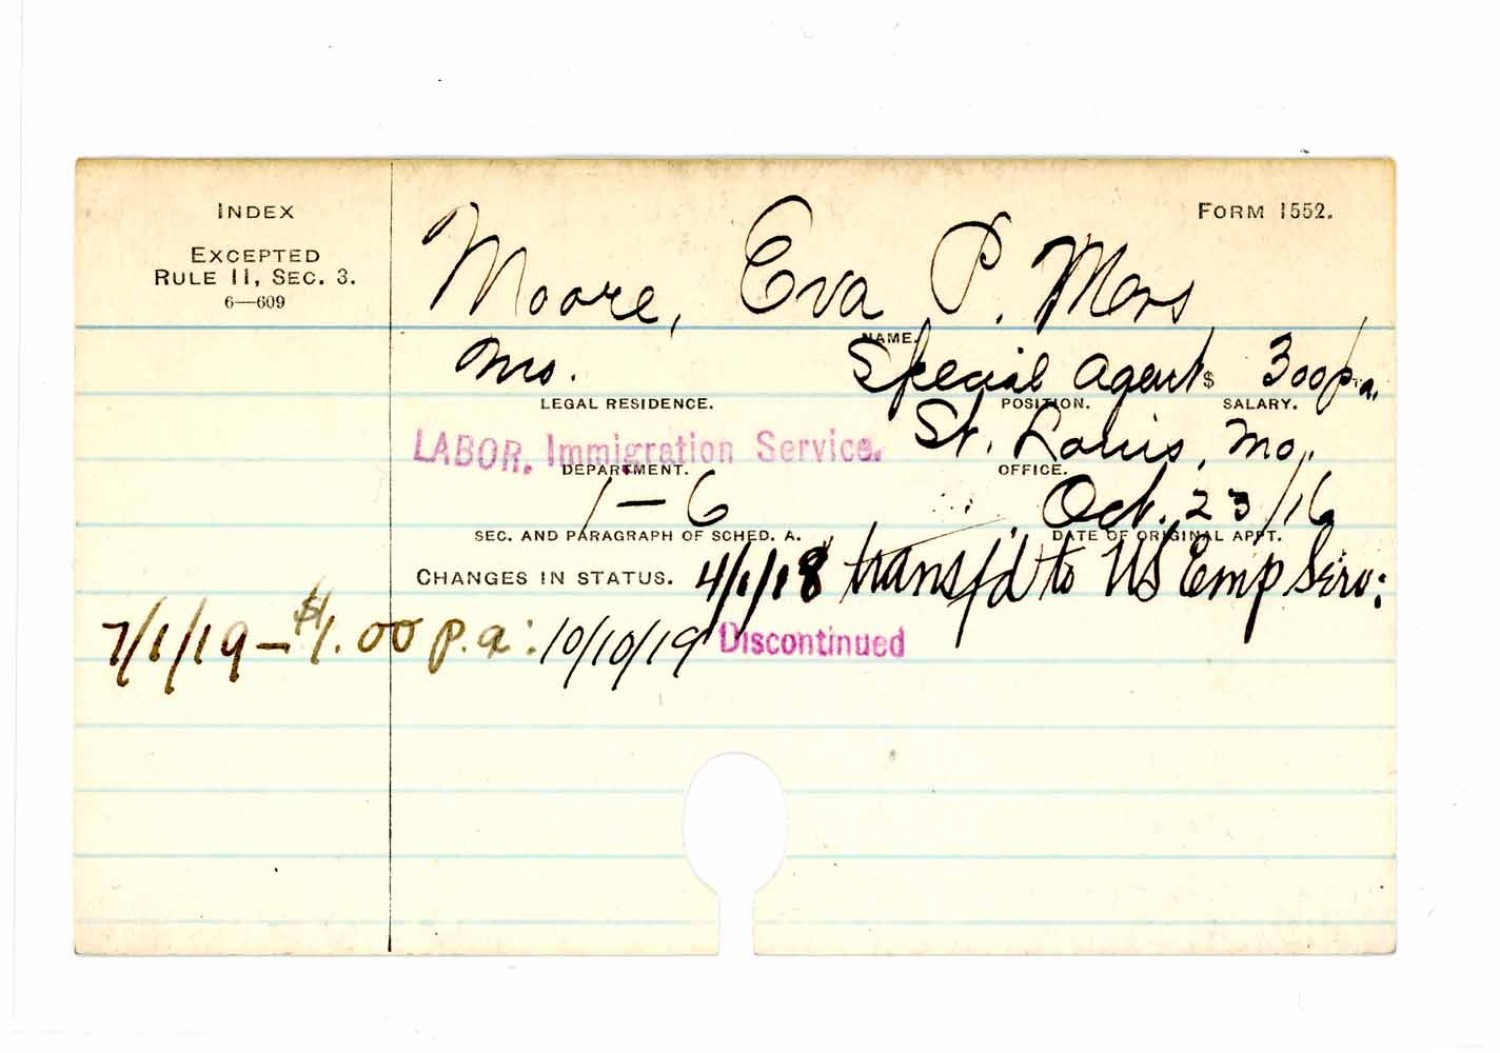 INDEX
EXCEPTED
RULE II, SEC. 3.
6—609
FORM 1552.
Moore, Eva P. Mrs
NAME.
Mo. Special Agent $ 300 p.a.
LEGAL RESIDENCE. POSITION. SALARY.
LABOR. Immigration Service. St. Louis, Mo.
DEPARTMENT. OFFICE.
1—6 Oct. 23/16
SEC. AND PARAGRAPH OF SCHED. A. DATE OF ORIGINAL APPT.
CHANGES IN STATUS. 4/1/18 transf'd to US Emp Serv:
7/1/19—$1.00 p.a: 10/10/19 Discontinued